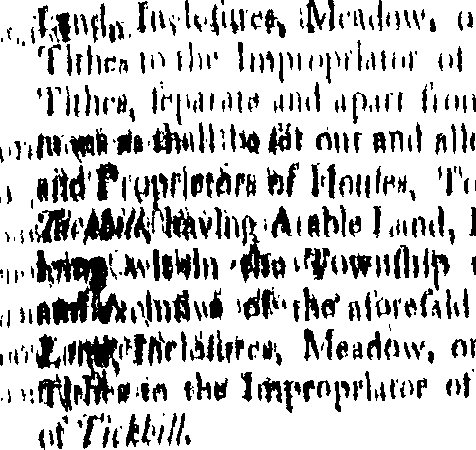 Land, Inclosures, Meadow, o
Tithes to the Impropriator of
Tithes, separate and apart from
as shall be set out and all
and Proprietors of Houses, To
Tickhill, having Arable Land,
within the Township
and exclusive of the aforesaid
Land, Inclosures, Meadow, or
Tithes to the Impropriator of
of Tickhill.